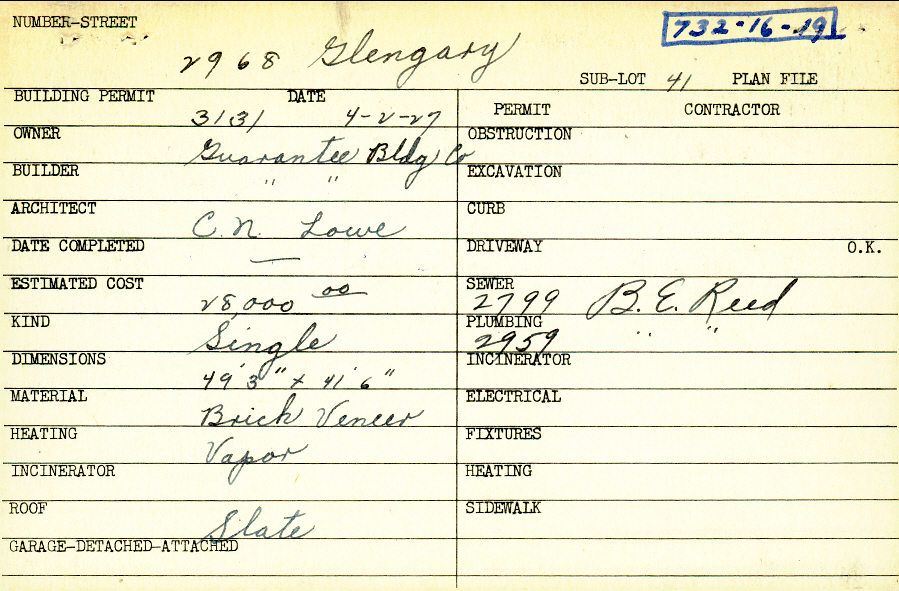 NUMBER-STREET
732-16-19
2968 Glengary
SUB-LOT 41 PLAN FILE
BUILDING PERMIT DATE
3131 4-2-27
PERMIT CONTRACTOR
OWNER
Guarantee Bldg Co
OBSTRUCTION
BUILDER
" "
EXCAVATION
ARCHITECT
C. N. Lowe
CURB
DATE COMPLETED
—
DRIVEWAY O.K.
ESTIMATED COST
28,000 00
SEWER
2799 B. E. Reed
KIND
Single
PLUMBING
2959 " "
DIMENSIONS
49' 3" x 41' 6"
INCINERATOR
MATERIAL
Brick Veneer
ELECTRICAL
HEATING
Vapor
FIXTURES
INCINERATOR
HEATING
ROOF
Slate
SIDEWALK
GARAGE-DETACHED-ATTACHED